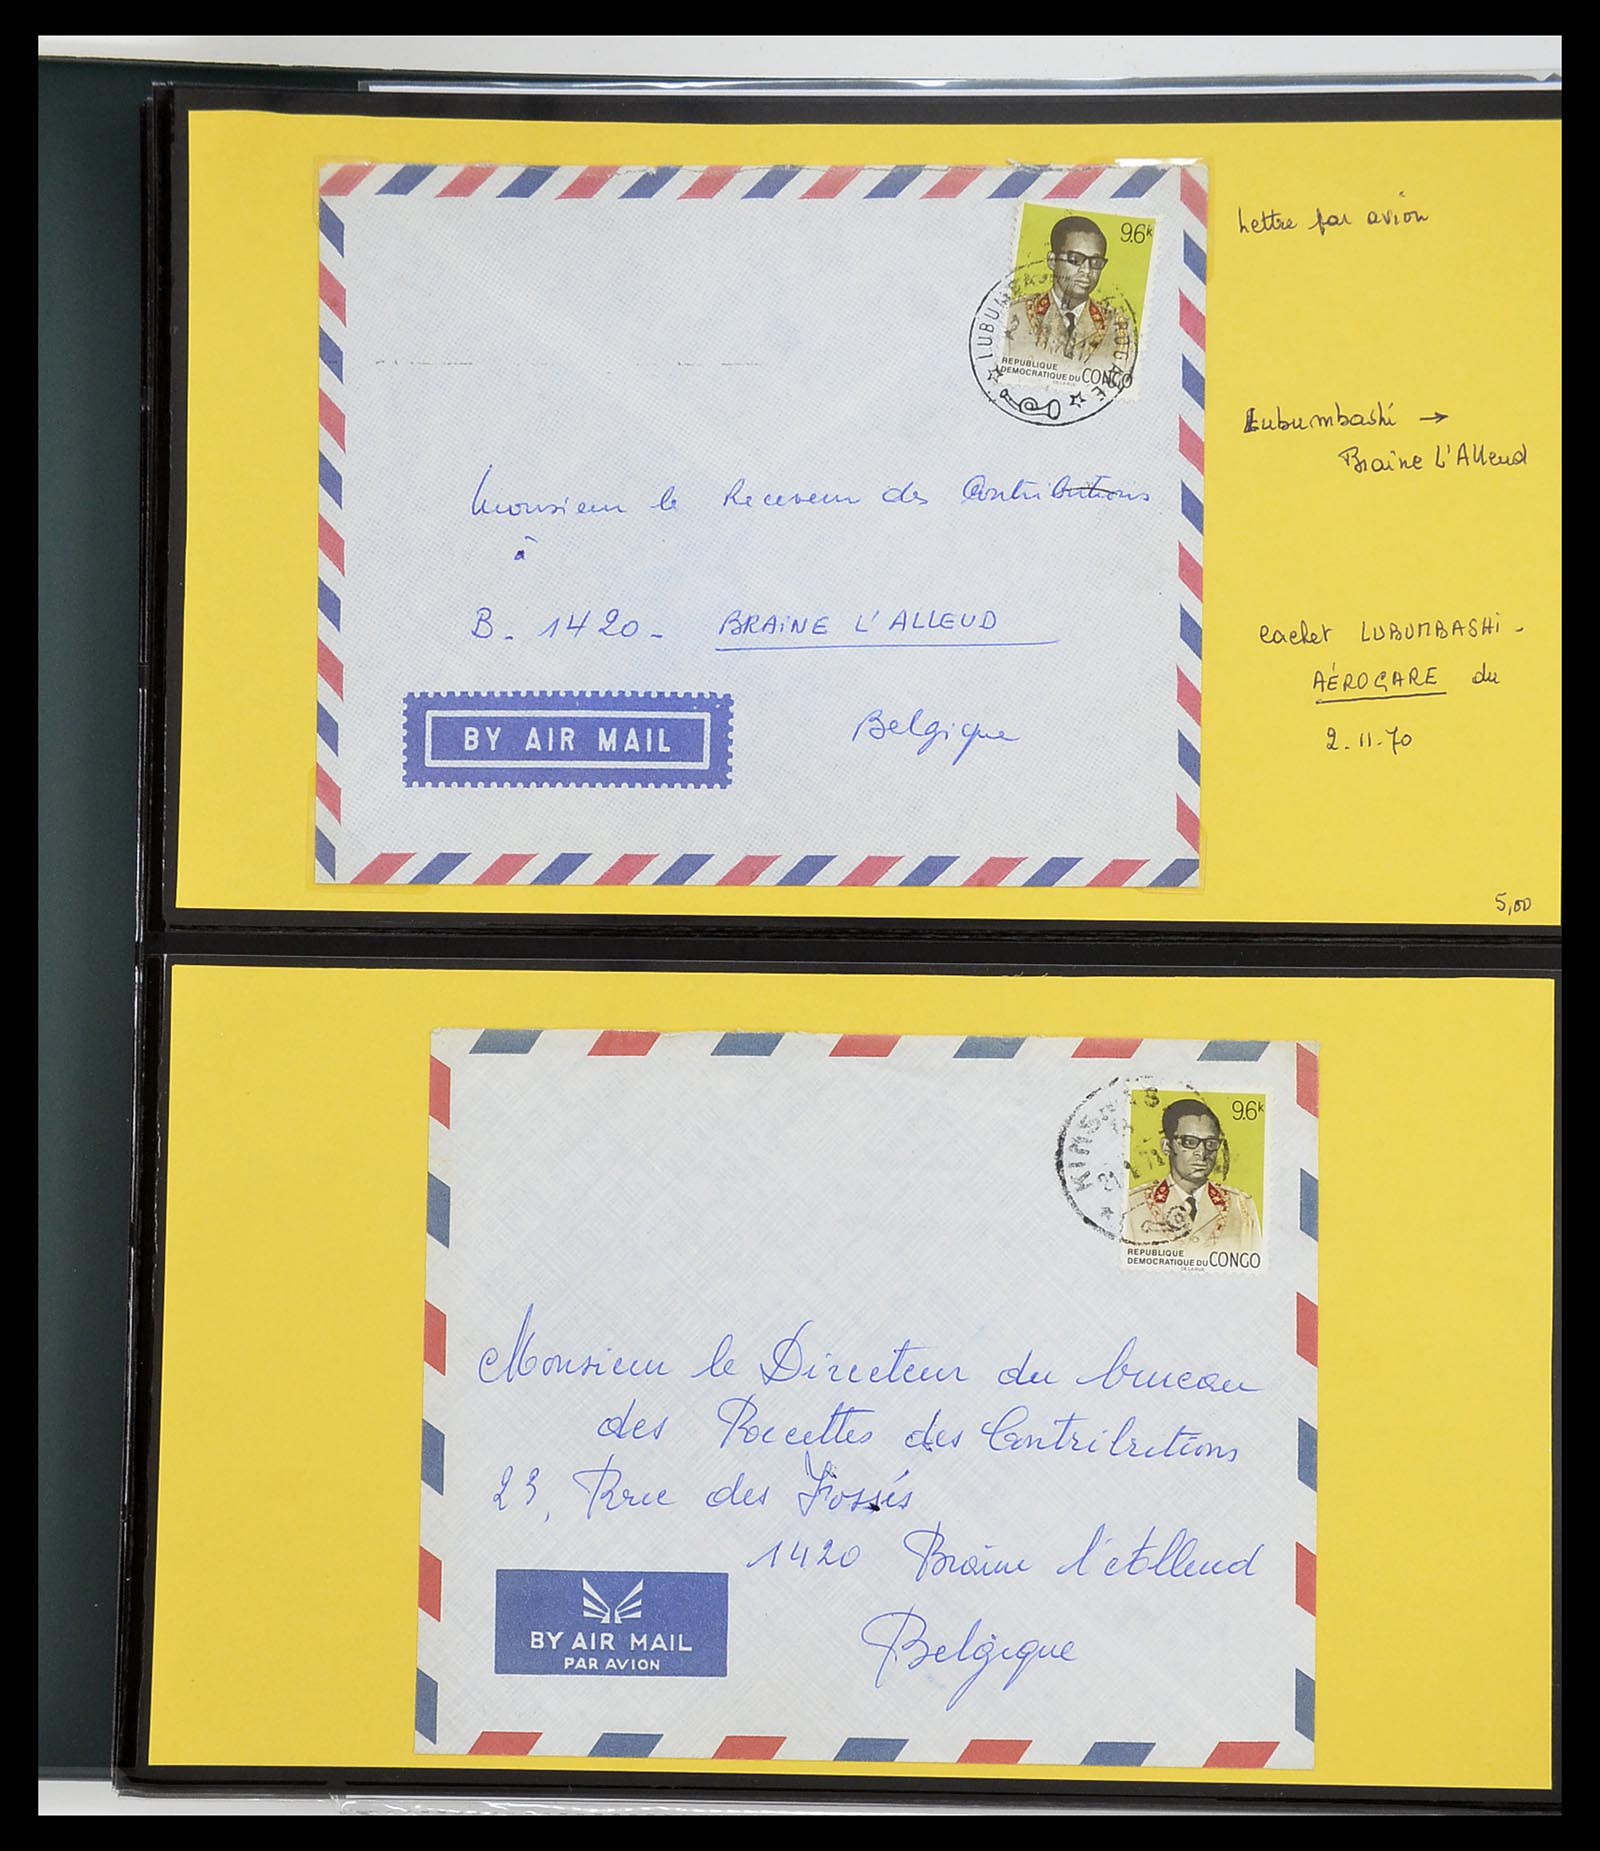 9.6k
LUBUMBASHI AEROGARE
REPUBLIQUE
DEMOCRATIQUE DU CONGO
Monsieur le Receveur des Contributions
à
B - 1420 - BRAINE L'ALLEUD
BY AIR MAIL
Belgique
Lettre par avion
Lubumbashi →
Braine L'Alleud
cachet LUBUMBASHI -
AÉROGARE du
2-11-70
5,00
9.6k
KINSHAS
REPUBLIQUE
DEMOCRATIQUE DU CONGO
DE LA RUE
Monsieur le Directeur du bureau
des Recettes des Contributions
23, Rue des Fossés
1420 Braine l'Alleud
BY AIR MAIL
PAR AVION
Belgique